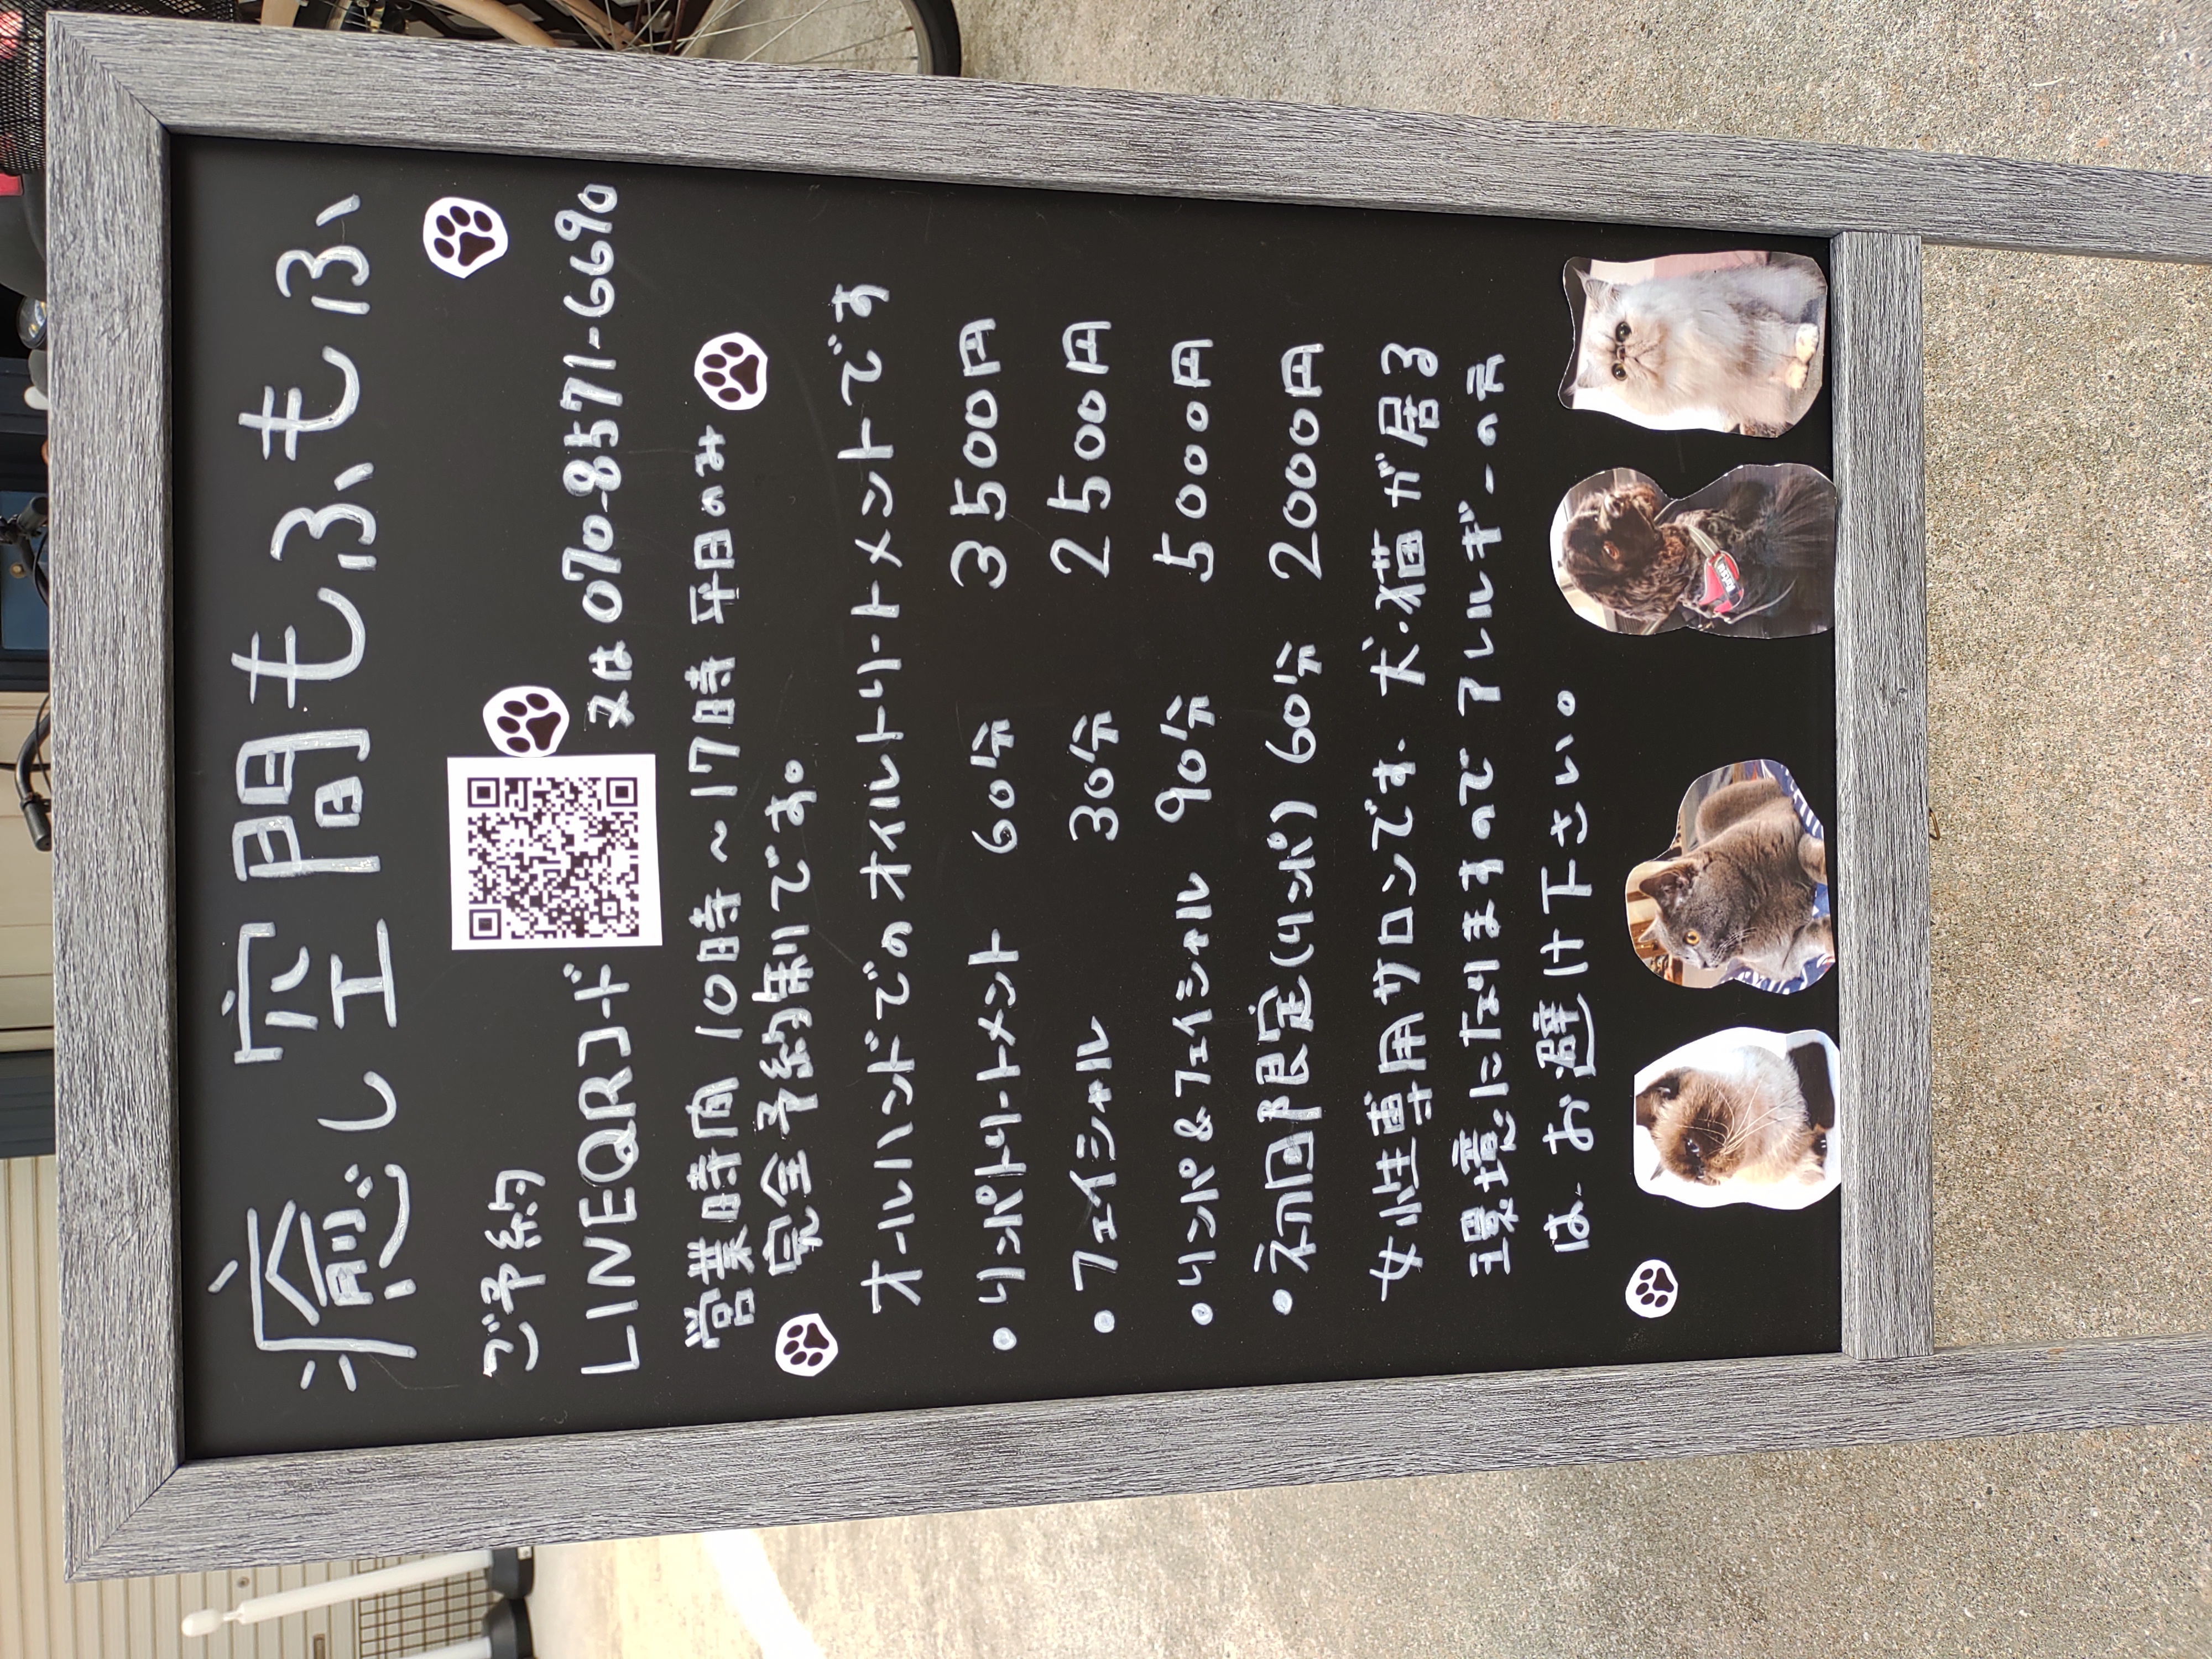 癒し空間もふもふ
ご予約
LINEQRコード 又は 070-8571-6690
営業時間 10時～17時 平日のみ
完全予約制です。
オールハンドでのオイルトリートメントです
・リンパトリートメント 60分 3500円
・フェイシャル 30分 2500円
・リンパ&フェイシャル 90分 5000円
・初回限定(リンパ) 60分 2000円
女性専用サロンです。犬・猫が居る
環境になりますので アレルギーの方
は、お避け下さい。